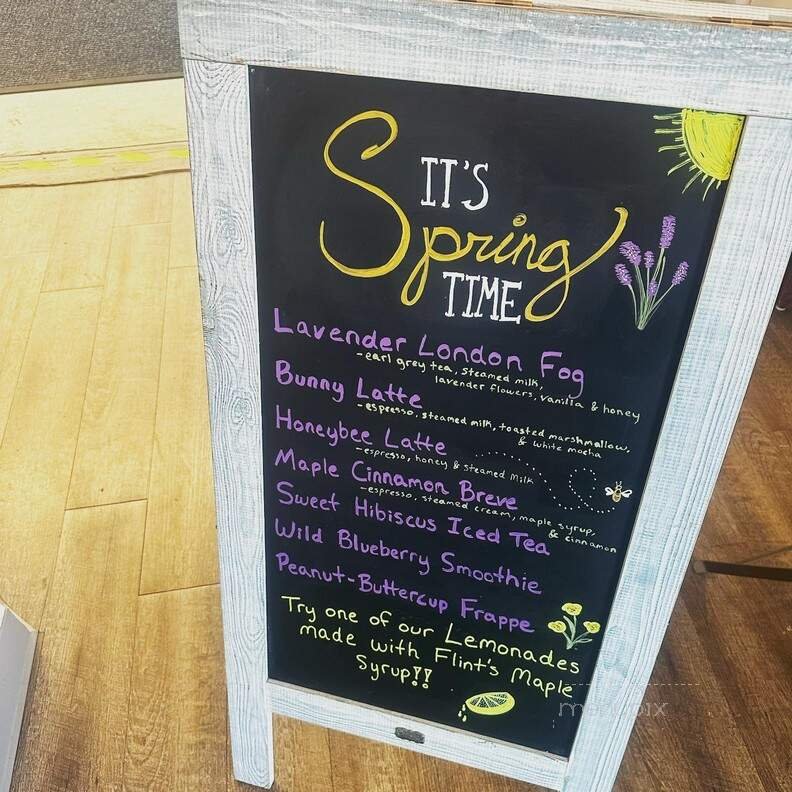 IT'S
Spring
TIME
Lavender London Fog
-earl grey tea, steamed milk,
lavender flowers, vanilla & honey
Bunny Latte
-espresso, steamed milk, toasted marshmallow,
& white mocha
Honeybee Latte
-espresso, honey & steamed milk
Maple Cinnamon Breve
-espresso, steamed cream, maple syrup,
& cinnamon
Sweet Hibiscus Iced Tea
Wild Blueberry Smoothie
Peanut-Buttercup Frappe
Try one of our Lemonades
made with Flint's Maple
Syrup!!
menupix